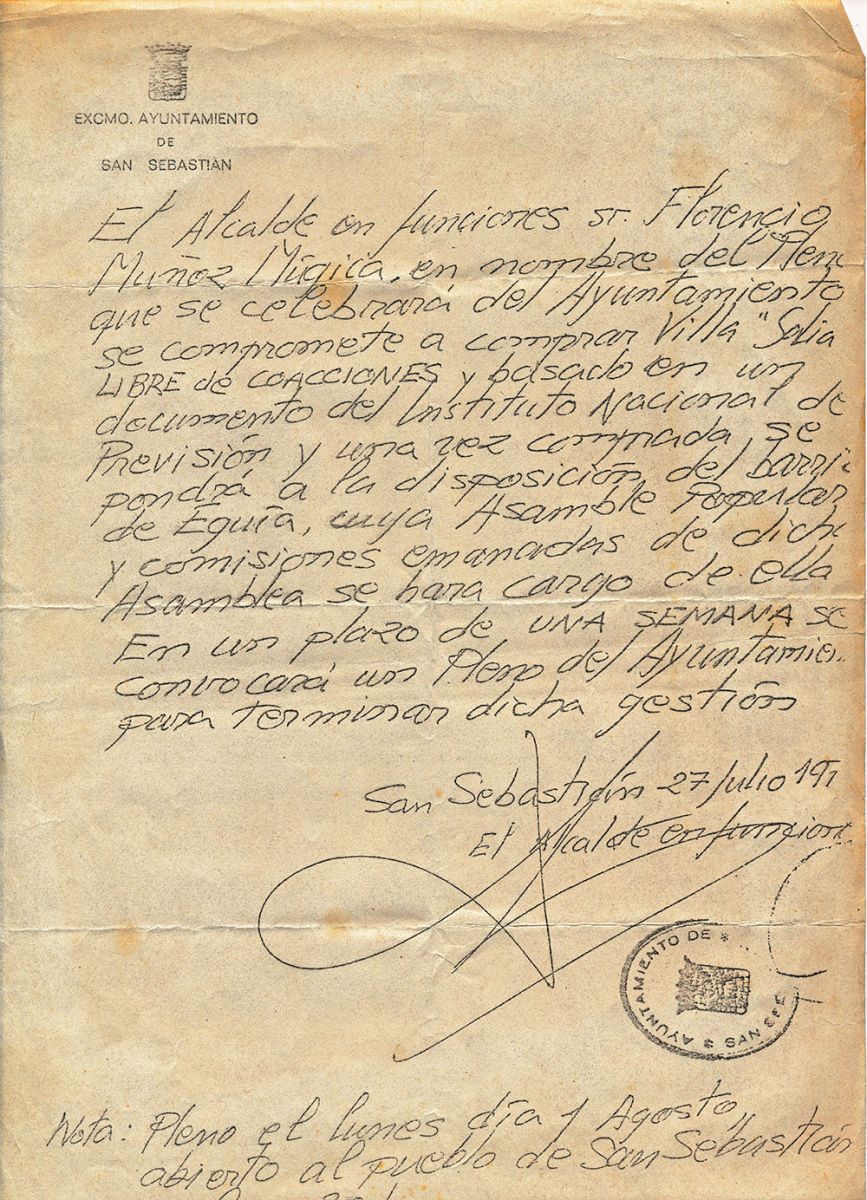 EXCMO. AYUNTAMIENTO
DE
SAN SEBASTIÁN
El Alcalde en funciones sr. Florencio
Muñoz Múgica, en nombre del Plen
que se celebrará del Ayuntamiento
se compromete a comprar Villa "Salia
LIBRE de COACCIONES y basado en un
documento del Instituto Nacional de
Previsión y una vez comprada, se
pondrá a la disposición del barri
de Eguía, cuya Asamble Popular
y comisiones emanadas de dich
Asamblea se hara cargo de ella
En un plazo de UNA SEMANA se
convocará un Pleno del Ayuntamien
para terminar dicha gestión
San Sebastián 27 Julio 197
El Alcalde en funcion
AYUNTAMIENTO DE * SAN SE
Nota: Pleno el lunes día 1 Agosto,
abierto al pueblo de San Sebastián